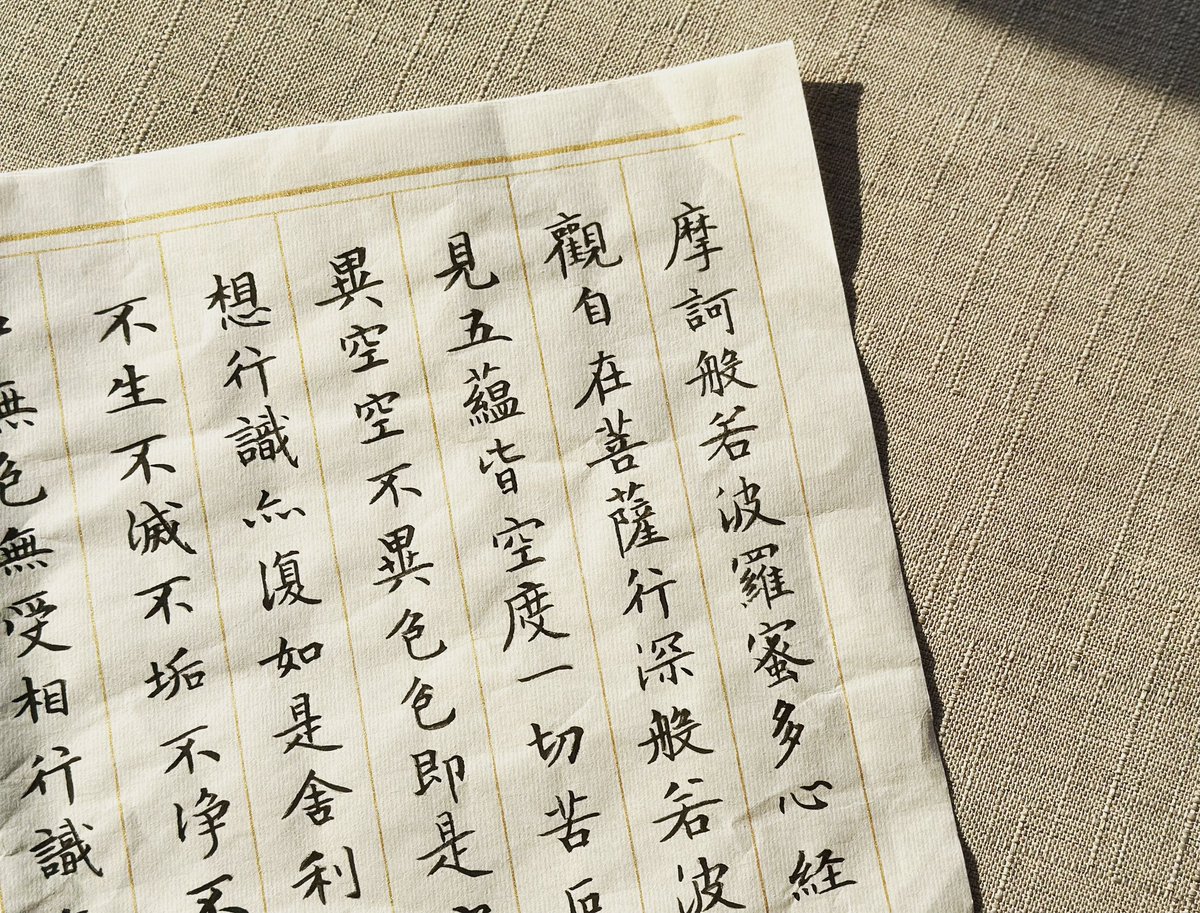 摩訶般若波羅蜜多心経
觀自在菩薩行深般若波
見五蘊皆空度一切苦
異空空不異色色即是
想行識亦復如是舍利
不生不滅不垢不浄不
無色無受相行識